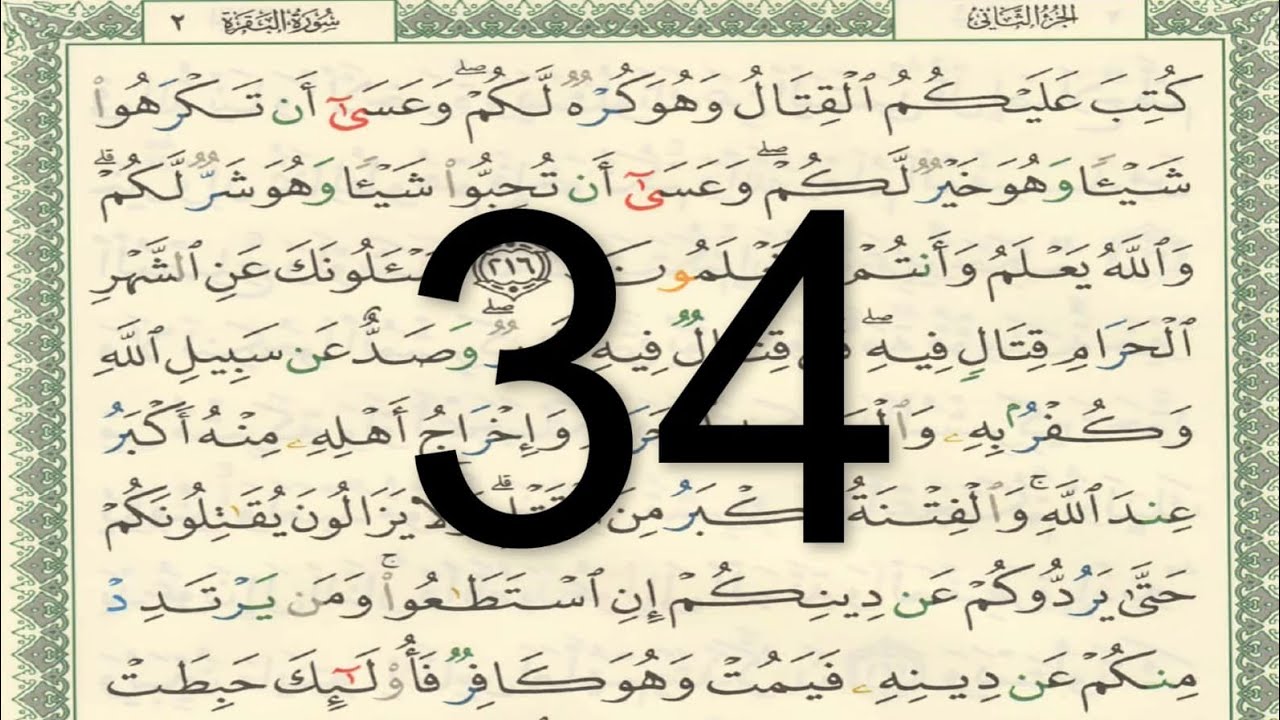 سُورَةُ البَقَرَةِ ٢
الجُزْءُ الثَّانِي
كُتِبَ عَلَيْكُمُ ٱلْقِتَالُ وَهُوَ كُرْهٌ لَّكُمْ ۖ وَعَسَىٰٓ أَن تَكْرَهُوا۟
شَيْـًٔا وَهُوَ خَيْرٌ لَّكُمْ ۖ وَعَسَىٰٓ أَن تُحِبُّوا۟ شَيْـًٔا وَهُوَ شَرٌّ لَّكُمْ ۗ
وَٱللَّهُ يَعْلَمُ وَأَنتُمْ ٢١٦ عَنِ ٱلشَّهْرِ
ٱلْحَرَامِ قِتَالٍ فِيهِ ۖ قِتَالٌ فِيهِ وَصَدٌّ عَن سَبِيلِ ٱللَّهِ
وَكُفْرٌۢ بِهِۦ وَإِخْرَاجُ أَهْلِهِۦ مِنْهُ أَكْبَرُ
عِندَ ٱللَّهِ ۚ وَٱلْفِتْنَةُ مِنَ يَزَالُونَ يُقَـٰتِلُونَكُمْ
حَتَّىٰ يَرُدُّوكُمْ عَن دِينِكُمْ إِنِ ٱسْتَطَـٰعُوا۟ ۚ وَمَن يَرْتَدِدْ
مِنكُمْ عَن دِينِهِۦ فَيَمُتْ وَهُوَ كَافِرٌ فَأُو۟لَـٰٓئِكَ حَبِطَتْ
34